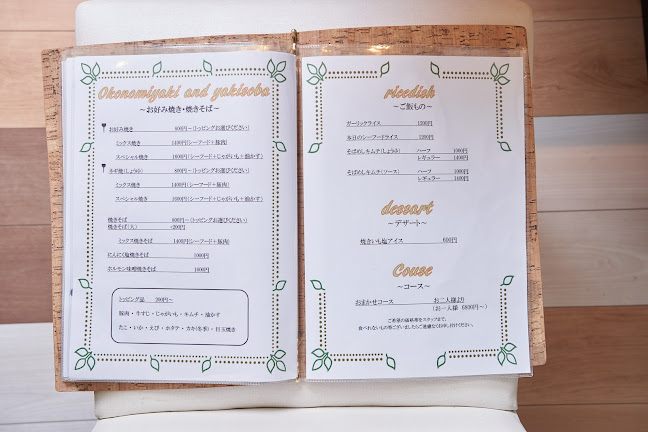 Okonomiyaki and yakisoba
～お好み焼き・焼きそば～
お好み焼き 800円～(トッピングお選びください)
ミックス焼き 1400円(シーフード+豚肉)
スペシャル焼き 1600円(シーフード+じゃがいも+油かす)
ネギ焼(しょうゆ) 800円～(トッピングお選びください)
ミックス焼き 1400円(シーフード+豚肉)
スペシャル焼き 1600円(シーフード+じゃがいも+油かす)
焼きそば 800円～(トッピングお選びください)
焼きそば(大) +200円
ミックス焼きそば 1400円(シーフード+豚肉)
にんにく塩焼きそば 1000円
ホルモン味噌焼きそば 1000円
トッピング品 200円～
豚肉・牛すじ・じゃがいも・キムチ・油かす
たこ・いか・えび・ホタテ・カキ(冬季)・目玉焼き
ricedish
～ご飯もの～
ガーリックライス 1200円
本日のシーフードライス 1200円
そばめしキムチ(しょうゆ) ハーフ 1000円
レギュラー 1400円
そばめしキムチ(ソース) ハーフ 1000円
レギュラー 1400円
dessart
～デザート～
焼きいも塩アイス 600円
Couse
～コース～
おまかせコース お二人様より
(お一人様 6800円～)
ご希望の価格帯をスタッフまで。
食べれないもの等ございましたらご遠慮なくお申し付けください。